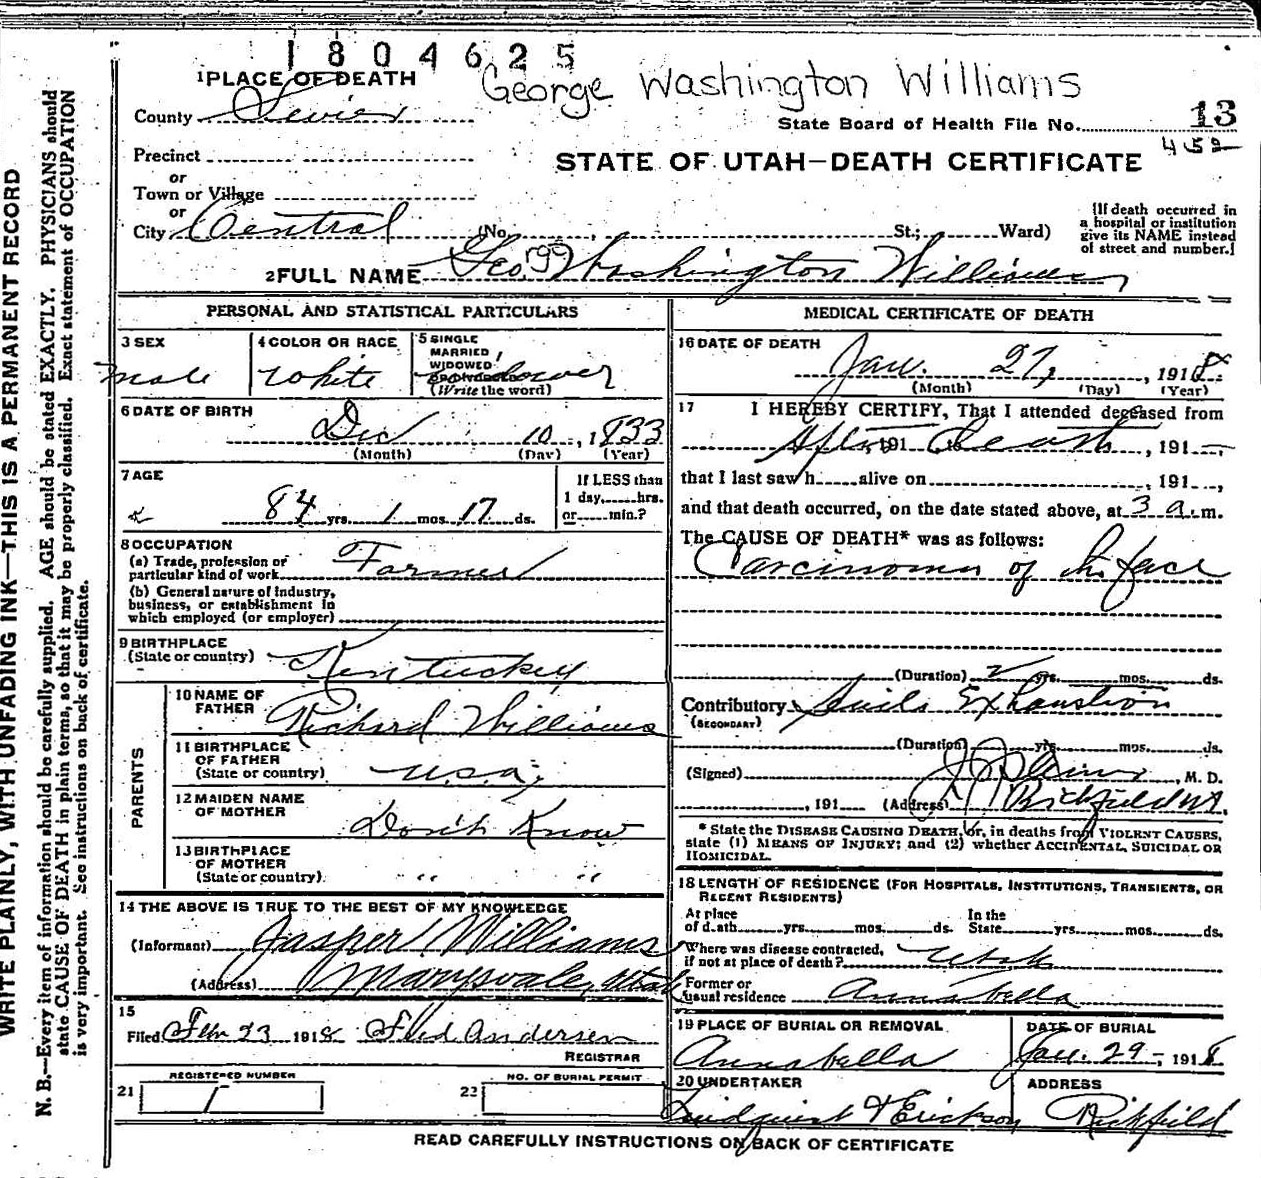 1804625
George Washington Williams
1 PLACE OF DEATH
County Sevier
State Board of Health File No. 13
450
Precinct
STATE OF UTAH—DEATH CERTIFICATE
or
Town or Village
or
City Central (No. , St.; Ward)
[If death occurred in
a hospital or institution
give its NAME instead
of street and number.]
2 FULL NAME Geo. Washington Williams
199
PERSONAL AND STATISTICAL PARTICULARS
3 SEX
male
4 COLOR OR RACE
White
5 SINGLE
MARRIED
WIDOWED
(Write the word)
6 DATE OF BIRTH
Dec 10, 1833
(Month) (Day) (Year)
7 AGE
84 yrs. 1 mos. 17 ds.
If LESS than
1 day, hrs.
or min.?
8 OCCUPATION
(a) Trade, profession or
particular kind of work Farmer
(b) General nature of Industry,
business, or establishment in
which employed (or employer)
9 BIRTHPLACE
(State or country) Kentucky
PARENTS
10 NAME OF
FATHER Richard Williams
11 BIRTHPLACE
OF FATHER
(State or country) U.S.a.
12 MAIDEN NAME
OF MOTHER Don't Know
13 BIRTHPLACE
OF MOTHER
(State or country) " "
14 THE ABOVE IS TRUE TO THE BEST OF MY KNOWLEDGE
(Informant) Jasper Williams
(Address) Marysvale, Utah
15
Filed Feb 23 1918 Fred Andersen
REGISTRAR
REGISTERED NUMBER
21 1
NO. OF BURIAL PERMIT
22
MEDICAL CERTIFICATE OF DEATH
16 DATE OF DEATH
Jan. 27, 1918
(Month) (Day) (Year)
17 I HEREBY CERTIFY, That I attended deceased from
After, 191 , to Death, 191 ,
that I last saw h alive on , 191 ,
and that death occurred, on the date stated above, at 3 a.m.
The CAUSE OF DEATH* was as follows:
Carcinoma of the face
(Duration) 2 yrs. mos. ds.
Contributory Senile Exhaustion
(SECONDARY)
(Duration) yrs. mos. ds.
(Signed) , M. D.
, 191 (Address) Richfield Ut.
* State the DISEASE CAUSING DEATH, or, in deaths from VIOLENT CAUSES,
state (1) MEANS OF INJURY; and (2) whether ACCIDENTAL, SUICIDAL OR
HOMICIDAL.
18 LENGTH OF RESIDENCE (FOR HOSPITALS, INSTITUTIONS, TRANSIENTS, OR
RECENT RESIDENTS)
At place
of death yrs. mos. ds.
In the
State yrs. mos. ds.
Where was disease contracted,
if not at place of death? Utah
Former or
usual residence Annabella
19 PLACE OF BURIAL OR REMOVAL
Annabella
DATE OF BURIAL
Jan. 29, 1918
20 UNDERTAKER
Lindquist & Erickson
ADDRESS
Richfield
READ CAREFULLY INSTRUCTIONS ON BACK OF CERTIFICATE
WRITE PLAINLY, WITH UNFADING INK—THIS IS A PERMANENT RECORD
N. B.—Every item of information should be carefully supplied. AGE should be stated EXACTLY. PHYSICIANS should
state CAUSE OF DEATH in plain terms, so that it may be properly classified. Exact statement of OCCUPATION
is very important. See instructions on back of certificate.